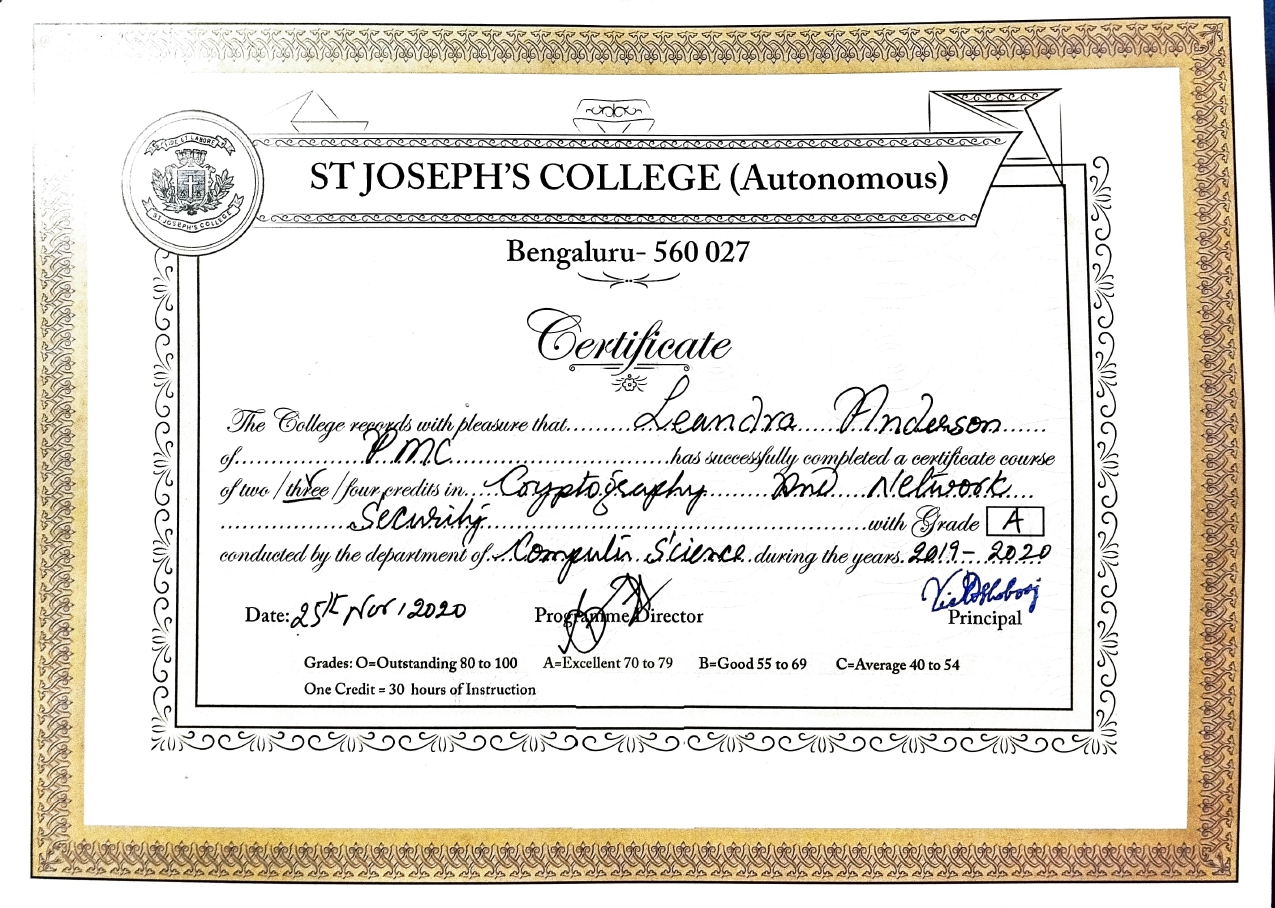 FIDE ET LABORE
ST JOSEPH'S COLLEGE
ST JOSEPH'S COLLEGE (Autonomous)
Bengaluru- 560 027
Certificate
The College records with pleasure that Leandra Anderson
of PMC has successfully completed a certificate course
of two / three / four credits in Cryptography And Network
Security with Grade A
conducted by the department of Computer Science during the years 2019-2020
Date: 25th Nov 2020 Programme Director Principal
Grades: O=Outstanding 80 to 100 A=Excellent 70 to 79 B=Good 55 to 69 C=Average 40 to 54
One Credit = 30 hours of Instruction